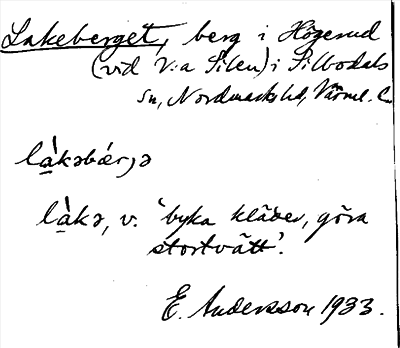 Lakeberget, berg i Högerud
(vid V:a Silen) i Silbodals
sn, Nordmarks hd, Värml. l.
là̱kəbǽrjə
là̱kə, v. 'byka kläder, göra
stortvätt'.
E. Andersson 1933.